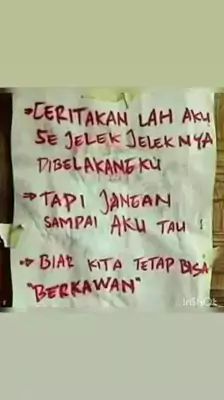 →CERITAKAN LAH AKU
SEJELEK JELEKNYA
DIBELAKANGKU
→TAPI JANGAN
SAMPAI AKU TAU
→BIAR KITA TETAP BISA
"BERKAWAN"